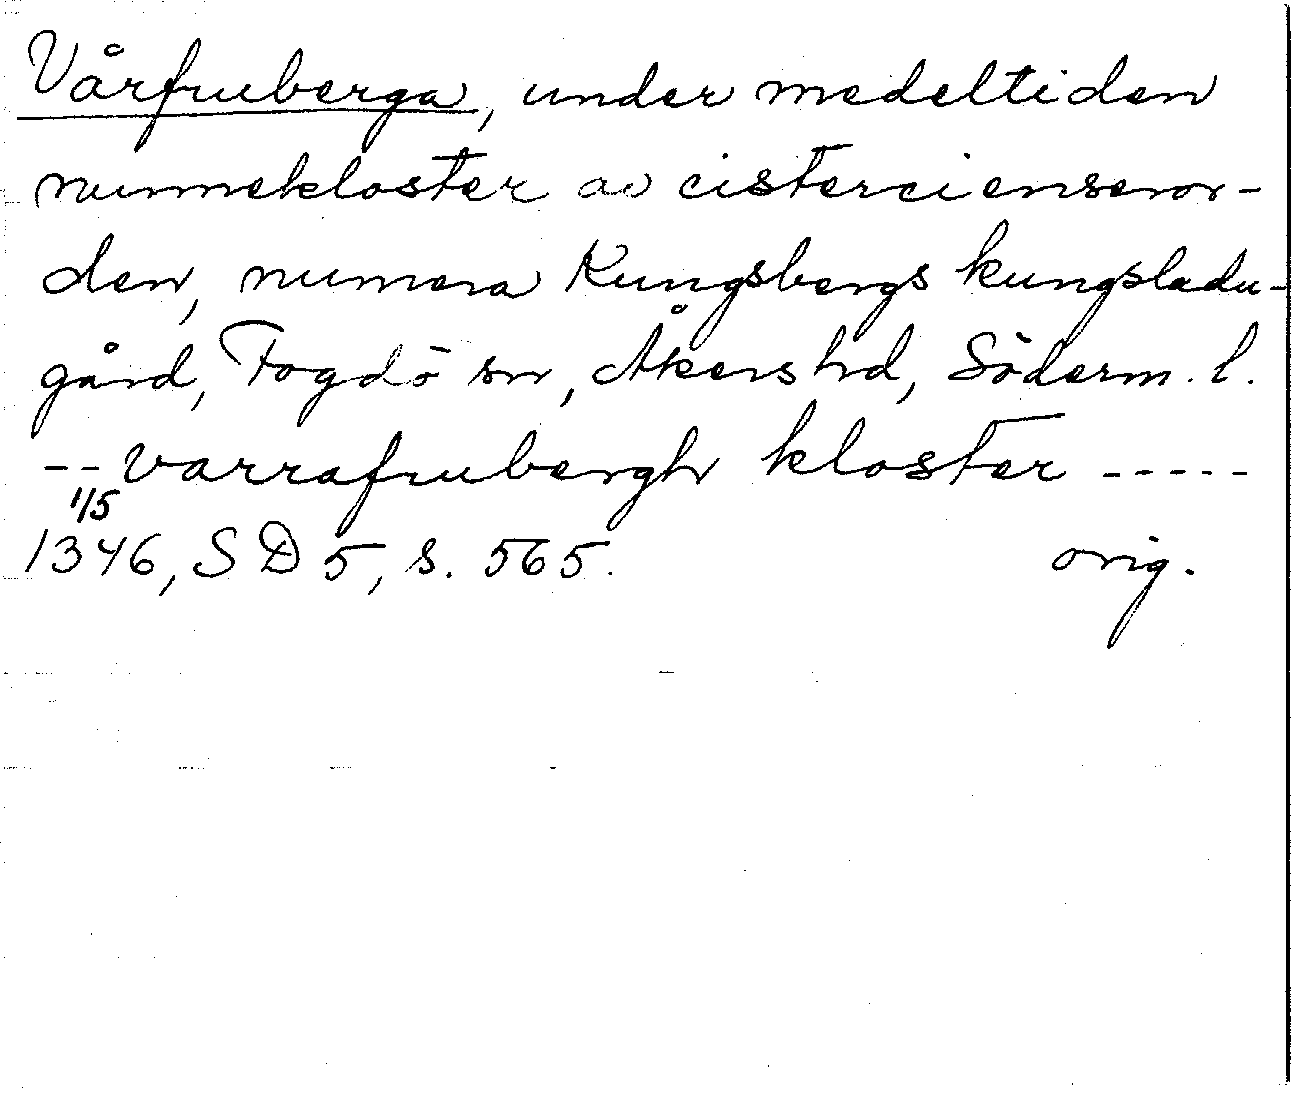 Vårfruberga, under medeltiden
nunnekloster av cistercienseror-
den, numera Kungsbergs kungsladu-
gård, Fogdö sn, Åkers hd, Söderm. l.
-- varrafrubergh kloster -----
1/5
1346, SD 5, s. 565. orig.